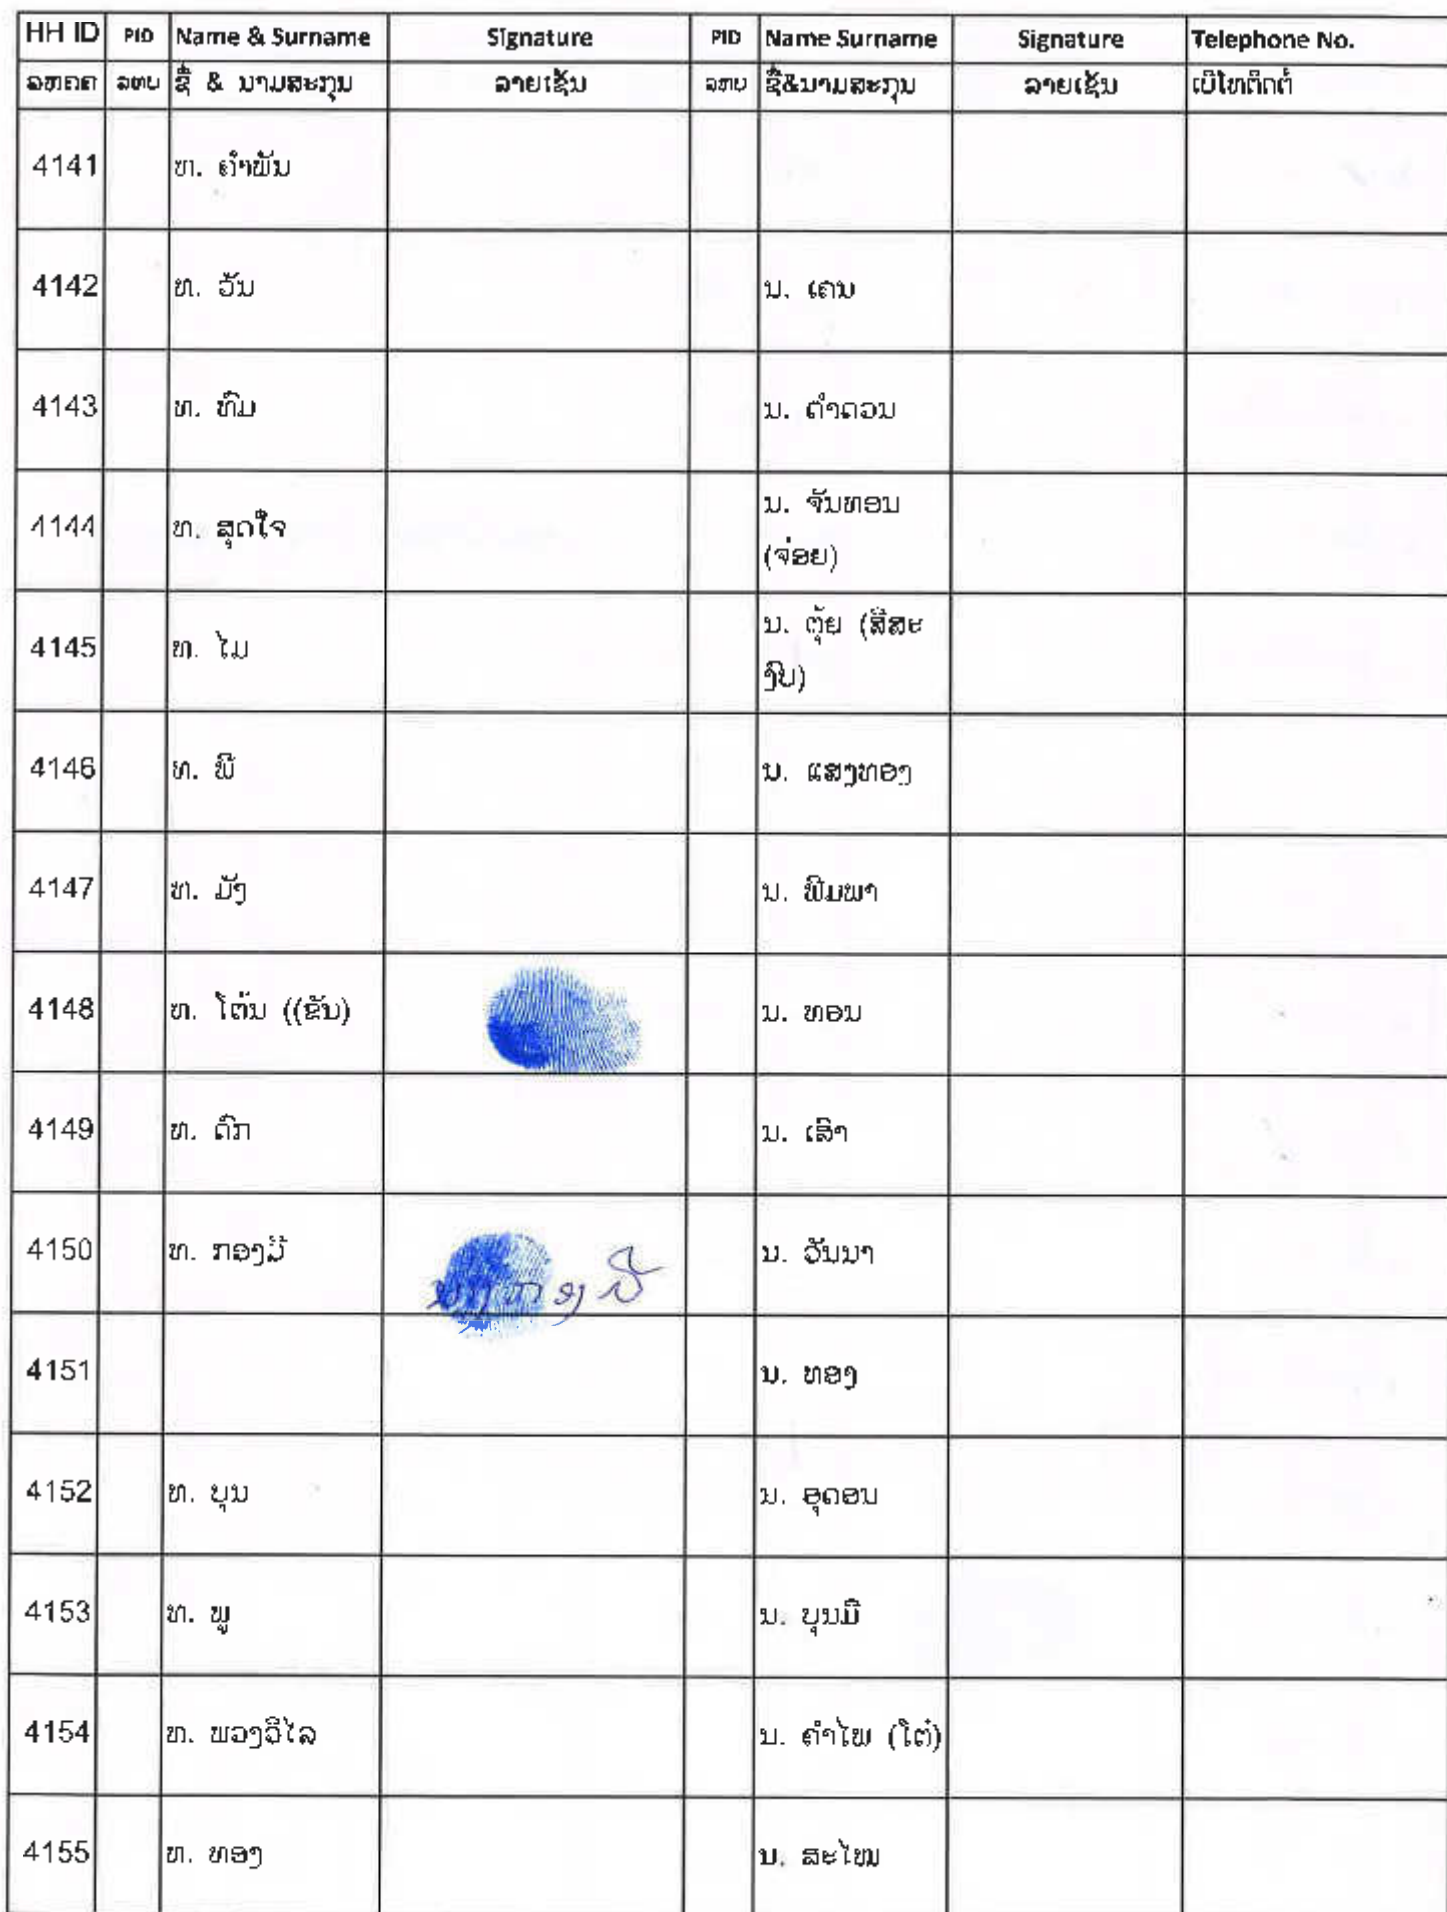 HH ID PID Name & Surname Signature PID Name Surname Signature Telephone No.
ລຫຄຄ ລຫບ ຊື່ & ນາມສະກຸນ ລາຍເຊັນ ລຫບ ຊື່&ນາມສະກຸນ ລາຍເຊັນ ເບີໂທຕິດຕໍ່
4141 ທ. ຄໍາພັນ
4142 ທ. ວັນ ນ. ເຄນ
4143 ທ. ທົມ ນ. ຄໍາດວນ
4144 ທ. ສຸດໃຈ ນ. ຈັນທອນ
(ຈ່ອຍ)
4145 ທ. ໄມ ນ. ຕຸ້ຍ (ສີສະ
ງົບ)
4146 ທ. ພີ ນ. ແສງທອງ
4147 ທ. ມັງ ນ. ພິມພາ
4148 ທ. ໂຕ່ນ ((ຂັນ) ນ. ທອນ
4149 ທ. ດົກ ນ. ເສົາ
4150 ທ. ກອງມີ ກອງມີ ນ. ວັນນາ
4151 ນ. ທອງ
4152 ທ. ບຸນ ນ. ອຸດອນ
4153 ທ. ພູ ນ. ບຸນມີ
4154 ທ. ພວງວິໄລ ນ. ຄໍາໄພ (ໂຕ໋)
4155 ທ. ທອງ ນ. ສະໄໝ